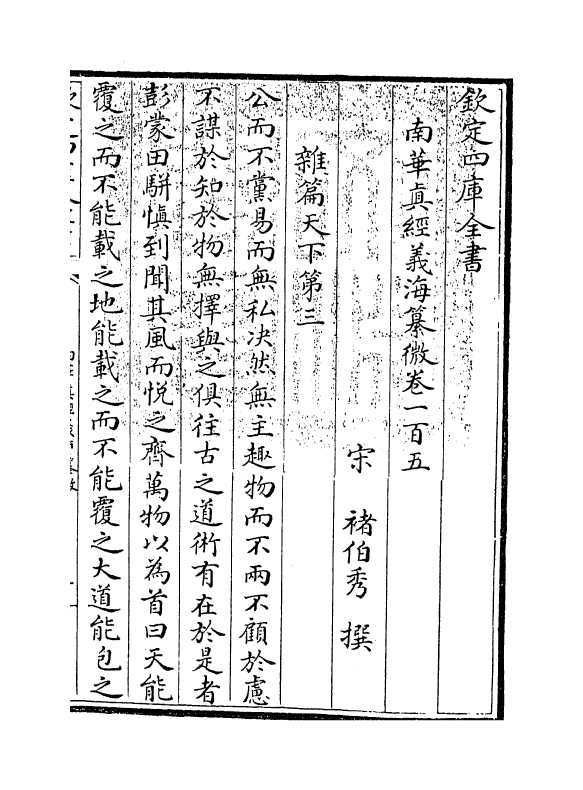 欽定四庫全書
南華真經義海纂微卷一百五
宋 褚伯秀 撰
雜篇天下第三
公而不黨易而無私决然無主趣物而不兩不顧於慮
不謀於知於物無擇與之俱往古之道術有在於是者
彭蒙田駢慎到聞其風而悦之齊萬物以為首曰天能
覆之而不能載之地能載之而不能覆之大道能包之